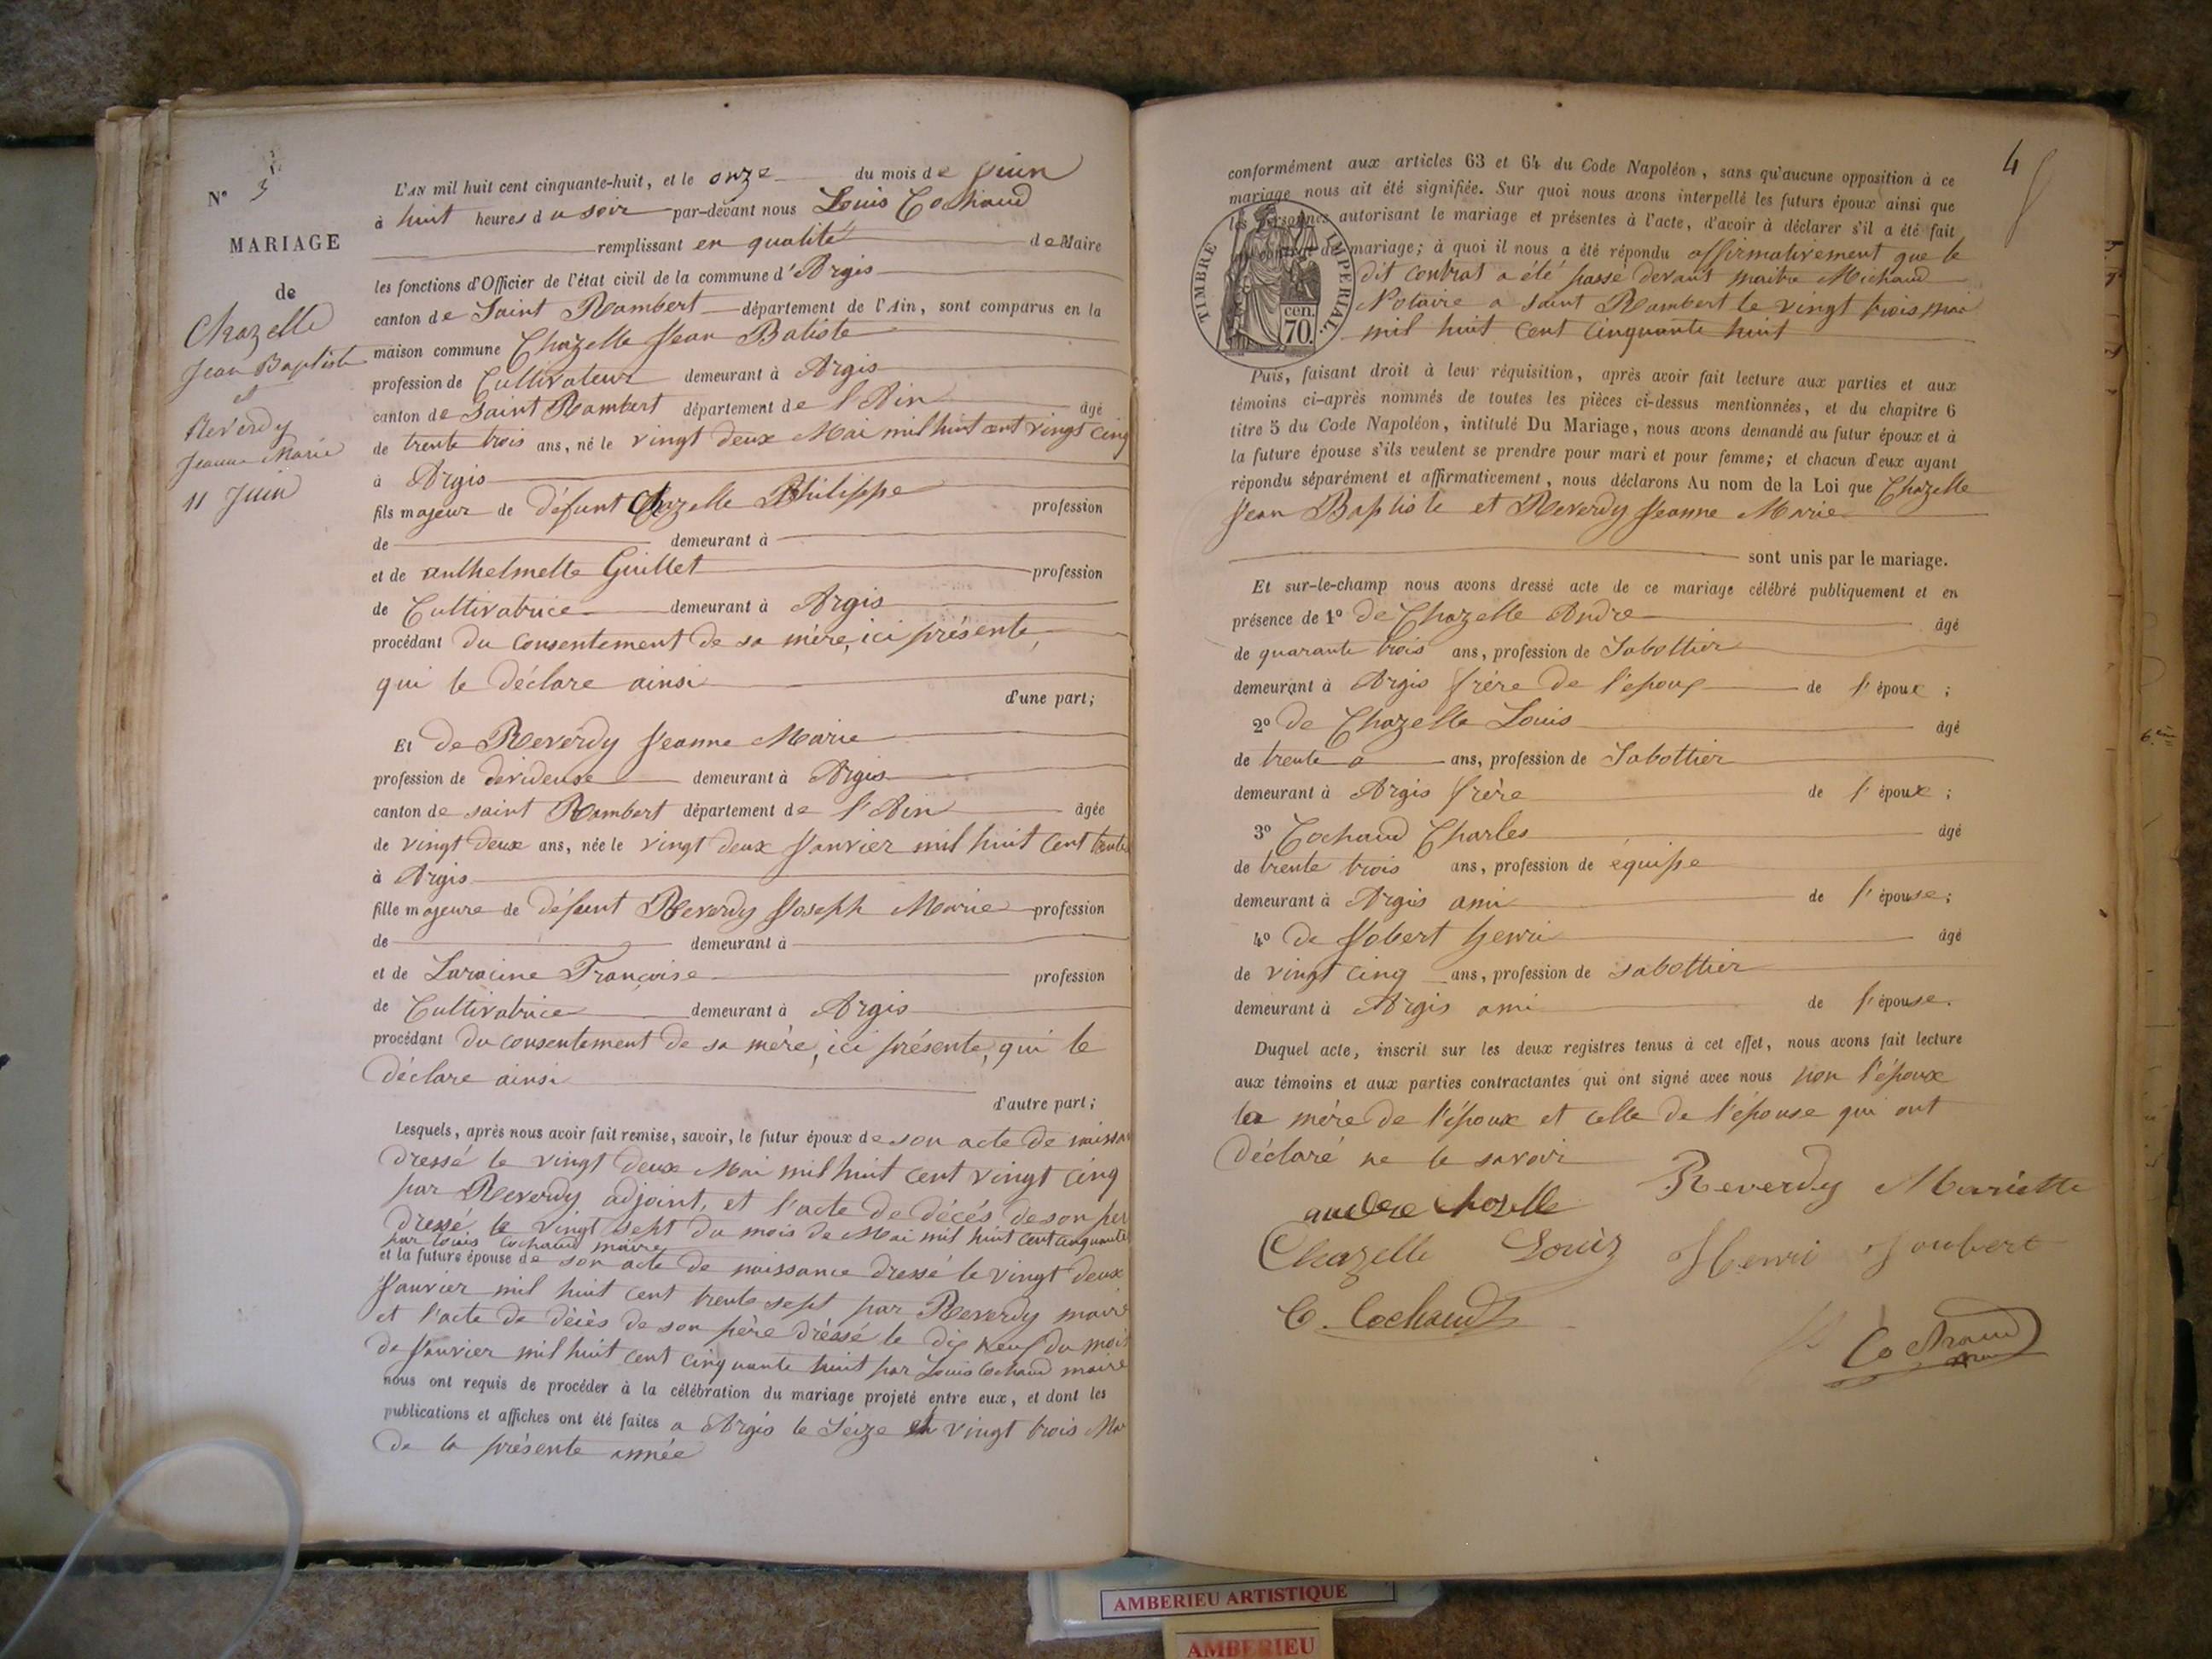 N° 3
MARIAGE
de
Chazelle
Jean Baptiste
et
Reverdy
Jeanne Marie
11 Juin
L'AN mil huit cent cinquante-huit, et le onze du mois de Juin
à huit heures du soir par-devant nous Louis Cochaud
remplissant en qualité de Maire
les fonctions d'Officier de l'état civil de la commune d'Argis
canton de Saint Rambert département de l'Ain, sont comparus en la
maison commune Chazelle Jean Batiste
profession de Cultivateur demeurant à Argis
canton de Saint Rambert département de l'Ain âgé
de trente trois ans, né le vingt deux Mai mil huit cent vingt cinq
à Argis
fils majeur de défunt Chazelle Philippe profession
de demeurant à
et de anthelmette Guillet profession
de Cultivatrice demeurant à Argis
procédant du consentement de sa mère, ici présente,
qui le déclare ainsi
d'une part;
Et de Reverdy Jeanne Marie
profession de devideuse demeurant à Argis
canton de saint Rambert département de l'Ain âgée
de vingt deux ans, née le vingt deux Janvier mil huit cent trente
à Argis
fille majeure de défunt Reverdy Joseph Marie profession
de demeurant à
et de Laracine Françoise profession
de Cultivatrice demeurant à Argis
procédant du consentement de sa mère, ici présente, qui le
déclare ainsi
d'autre part;
Lesquels, après nous avoir fait remise, savoir, le futur époux de son acte de naissa
dressé le vingt deux Mai mil huit cent vingt cinq
par Reverdy adjoint, et l'acte de décés de son per
dressé le vingt sept du mois de Mai mil huit cent cinquante
par Louis Cochaud maire
et la future épouse de son acte de naissance dressé le vingt deux
Janvier mil huit cent trente sept par Reverdy maire
et l'acte de décès de son père dréssé le dix neuf du mois
de Janvier mil huit cent cinquante huit par Louis Cochaud maire
nous ont requis de procéder à la célébration du mariage projeté entre eux, et dont les
publications et affiches ont été faites a Argis le Séize et vingt trois Ma
de la présente année
4
conformément aux articles 63 et 64 du Code Napoléon, sans qu'aucune opposition à ce
mariage nous ait été signifiée. Sur quoi nous avons interpellé les futurs époux ainsi que
les personnes autorisant le mariage et présentes à l'acte, d'avoir à déclarer s'il a été fait
contrat de mariage; à quoi il nous a été répondu affirmativement que le
dit contrat a été passé devant maitre Michaud
Notaire a saint Rambert le vingt trois mai
mil huit cent cinquante huit
TIMBRE IMPERIAL.
cen.
70.
Puis, faisant droit à leur réquisition, après avoir fait lecture aux parties et aux
témoins ci-après nommés de toutes les pièces ci-dessus mentionnées, et du chapitre 6
titre 5 du Code Napoléon, intitulé Du Mariage, nous avons demandé au futur époux et à
la future épouse s'ils veulent se prendre pour mari et pour femme; et chacun d'eux ayant
répondu séparément et affirmativement, nous déclarons Au nom de la Loi que Chazelle
Jean Baptiste et Reverdy Jeanne Marie
sont unis par le mariage.
Et sur-le-champ nous avons dressé acte de ce mariage célébré publiquement et en
présence de 1° de Chazelle Andre âgé
de quarante trois ans, profession de Sabottier
demeurant à Argis frère de l'époux de l'époux ;
2° de Chazelle Louis âgé
de trente a ans, profession de Sabottier
demeurant à Argis frère de l'époux ;
3° Cochaud Charles âgé
de trente trois ans, profession de équipe
demeurant à Argis ami de l'épouse;
4° de Jobert henri âgé
de vingt cinq ans, profession de sabottier
demeurant à Argis ami de l'épouse.
Duquel acte, inscrit sur les deux registres tenus à cet effet, nous avons fait lecture
aux témoins et aux parties contractantes qui ont signé avec nous non l'époux
la mère de l'époux et celle de l'épouse qui ont
déclaré ne le savoir
Reverdy Mariette
andre chozelle
Chazelle Louis
Henri Joubert
C. Cochaud
Cochaud
6.ème
AMBERIEU ARTISTIQUE
AMBERIEU